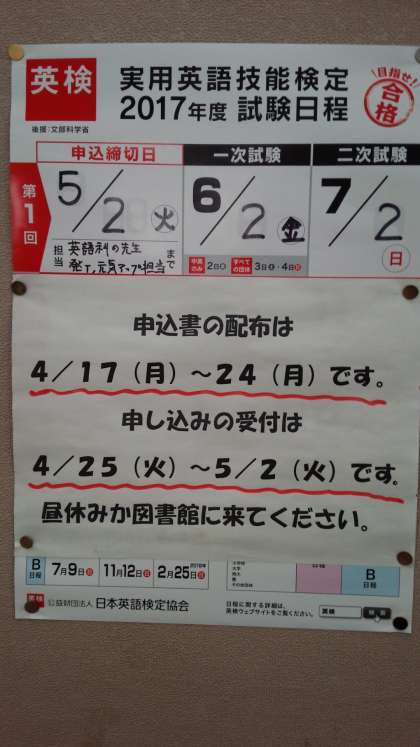 英検
後援:文部科学省
実用英語技能検定
2017年度 試験日程
目指せ!
合格
申込締切日
一次試験
二次試験
第1回
5/2 火
6/2 金
7/2 日
担当 英語科の先生 まで
中高のみ 2日金 すべての団体 3日土・4日日
申込書の配布は
4/17(月)〜24(月)です。
申し込みの受付は
4/25(火)〜5/2(火)です。
昼休みか図書館に来てください。
B日程 7月9日日 11月12日日 2018年 2月25日日
B日程
英検 公益財団法人 日本英語検定協会
日程に関する詳細は、
英検ウェブサイトをご覧ください。
英検 検索